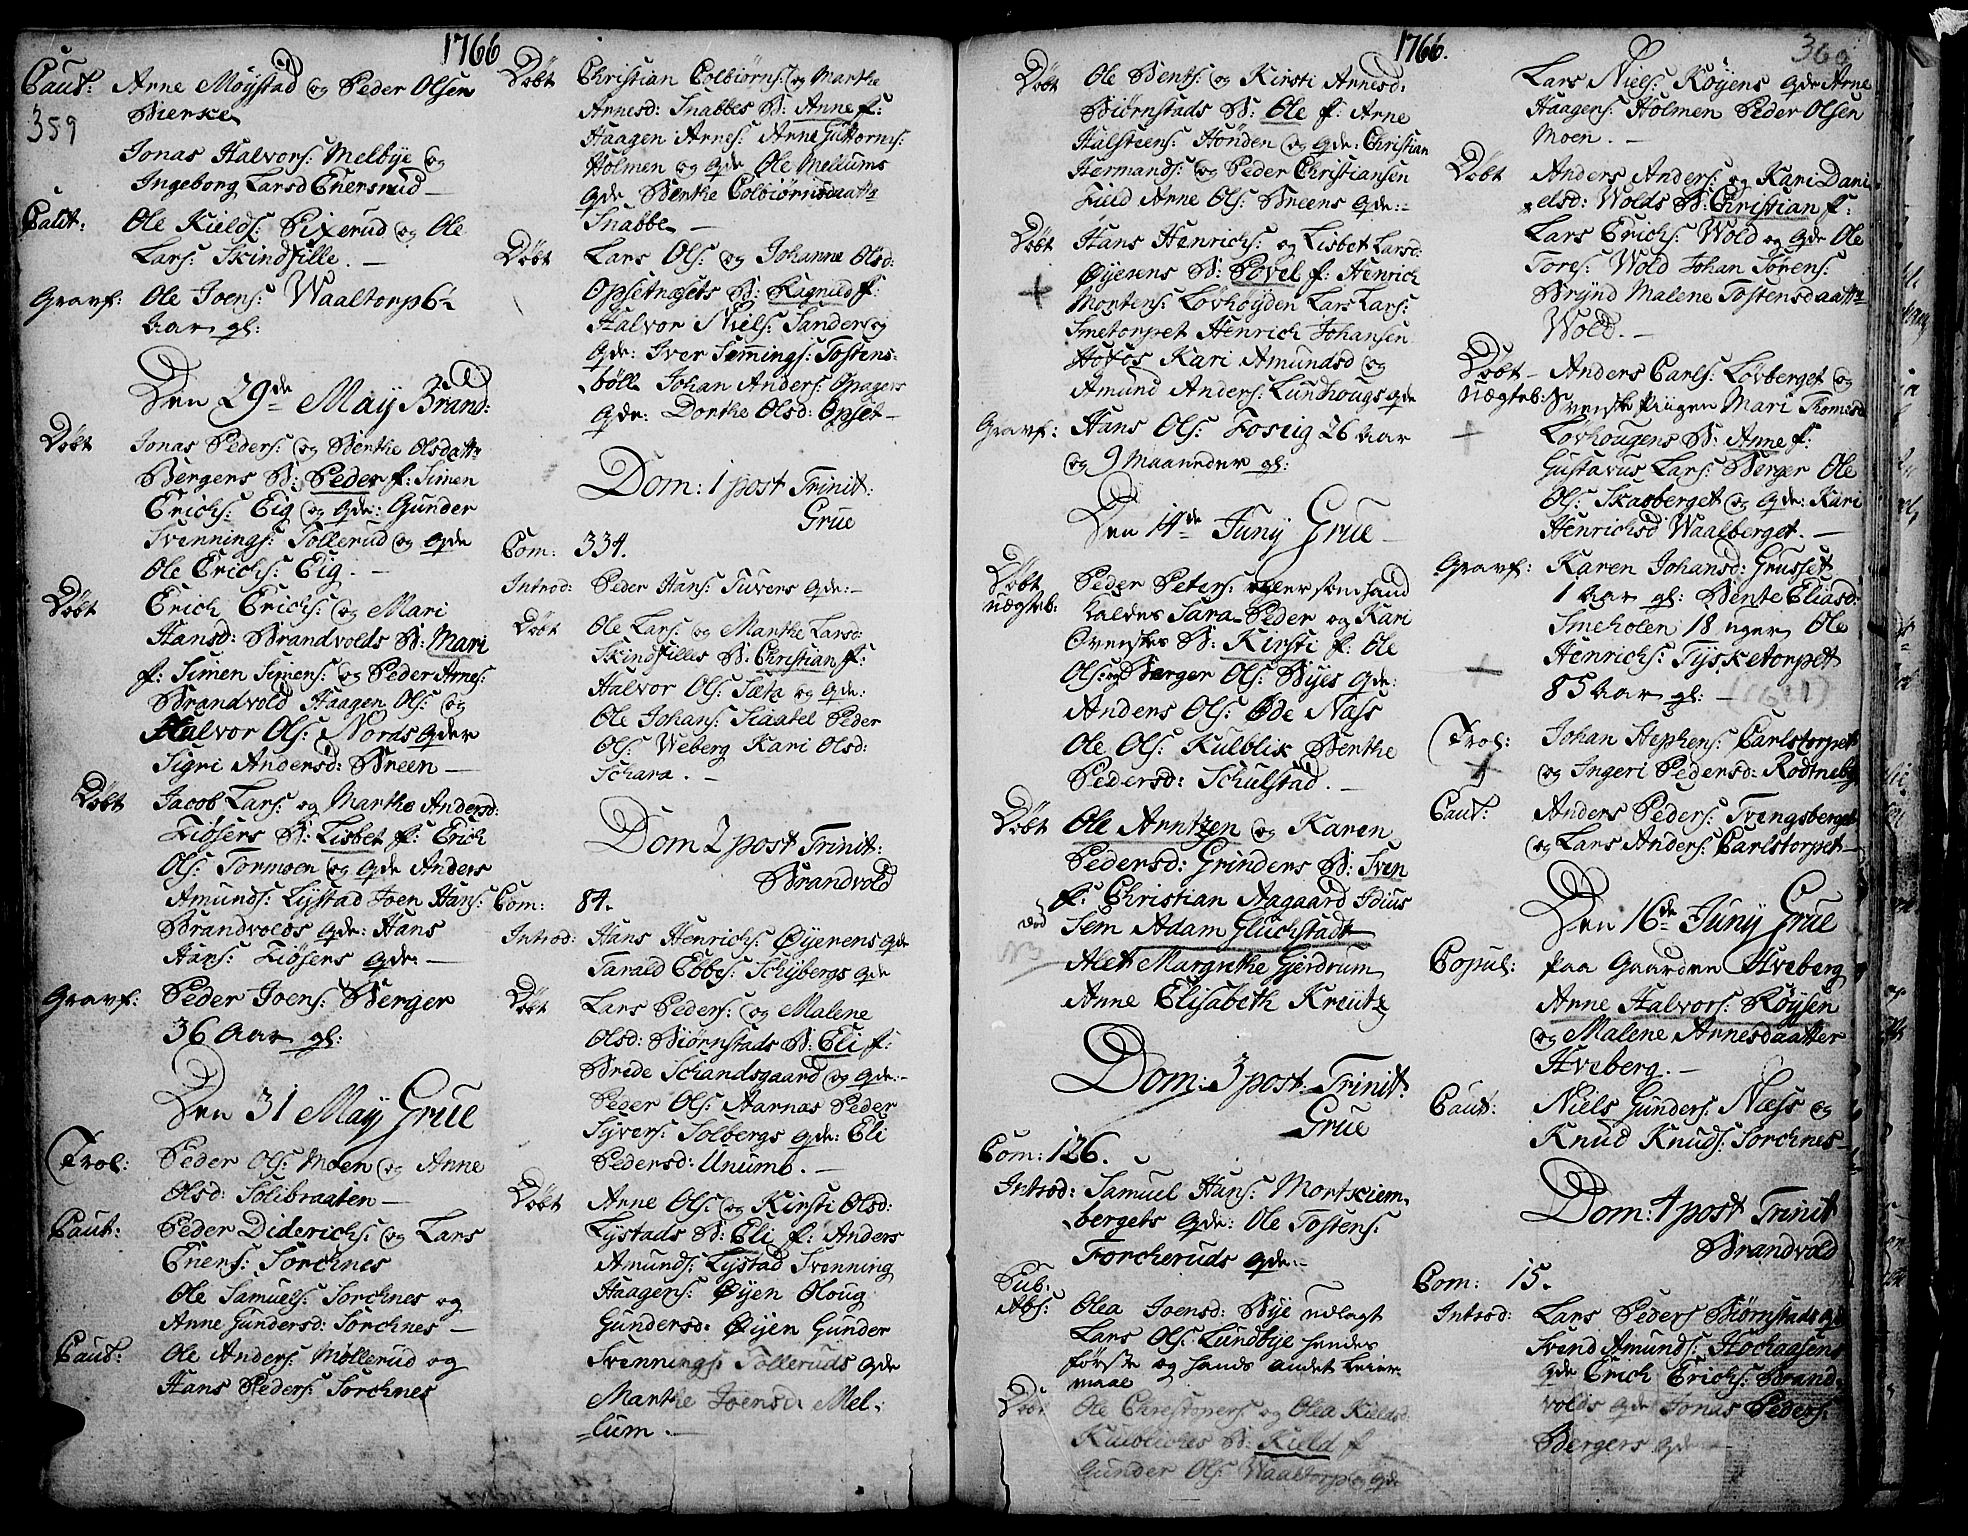 1766
359
Caut: Arne Moÿstad og Peder Olsen
Bierke
Jonas Halvors: Melbÿe og
Ingeborg Larsd Enersrud
Caut: Ole Kields: Pixerud og Ole
Lars: Skindfille. —
Gravf: Ole Joens: Waaltorp 62
Aar gl:
Den 29de Maÿ Brand:
Döbt Jonas Peders: og Berthe Olsdattr
Bergens B: Peder f: Simen
Erichs: Eig og Qde: Gunder
Svennings: Tollerud og Qde
Ole Erichs: Eig. —
Döbt Erich Erichs: og Mari
Hansd: Brandvolds B: Mari
f: Simen Simens: og Peder Arnes:
Brandvold Haagen Ols: og
Halvor Ols: Nords Qder
Sigri Andersd: Breen —
Döbt Jacob Lars: og Marthe Andersd:
Fiösers B: Lisbet f: Erich
Ols: Tormoen og Qde Anders
Amunds: Lÿstad Joen Hans:
Brandvolds Qde: Hans
Hans: Fiösers Qde: —
Gravf: Peder Joens: Berger
36 Aar gl:
Den 31 Maÿ Grue
Trol: Peder Ols: Moen og Anne
Olsd: Solibraaten —
Caut: Peder Diderichs: og Lars
Eners: Sorchnes
Ole Samuels: Sorchnes og
Anne Gundersd: Sorchnes —
Caut: Ole Anders: Mollerud og
Hans Peders: Sorchnes
Döbt Christian Colbiörns: og Marthe
Arnesd: Snabbes B: Anne f:
Haagen Arnes: Arne Guttorms:
Holmen og Qde Ole Mellums
Qde Berthe Colbiörnsdaattr
Snabbe —
Döbt Lars Ols: og Johanne Olsd:
Opsetnæsets B: Ragnild f:
Halvor Niels: Sander og
Qde: Iver Semings: Tostens:
böll Johan Anders: Opagers
Qde: Dorthe Olsd: Opset —
Dom: 1 post Trinit:
Grue
Com: 334.
Introd: Peder Hans: Tuvens Qde: —
Döbt Ole Lars: og Marthe Larsd:
Skindfilles B: Christian f:
Halvor Ols: Sæta og Qde:
Ole Johans: Skaatel Peder
Ols: Weberg Kari Olsd:
Schara. —
Dom 2 post Trinit:
Brandvold
Com: 84.
Introd: Hans Henrichs: Øÿerens Qde
Tarald Ebbes: Schÿbergs Qde
Döbt Lars Peders: og Malene
Olsd: Biörnstads B: Eli f:
Brede Schandsgaard og Qde: —
Peder Ols: Aarnæs Peder
Sÿvers: Solbergs Qde: Eli
Pedersd: Unum. —
Döbt Arne Ols: og Kirsti Olsd:
Lÿstads B: Eli f: Anders
Amunds: Lÿstad Svenning
Haagens: Øÿen Oloug
Gundersd: Øÿen Gunder
Svennings: Tolleruds Qde
Marthe Joensd: Mel:
lum. —
1766.
360
Döbt Ole Bents: og Kirsti Arnesd:
Biörnstads B: Ole f: Arne
Halsteens: Hönden og Qde: Christian
Hermands: og Peder Christiansen
Field Arne Ols: Breens Qde: —
Döbt Hans Henrichs: og Lisbet Larsd:
Øÿerens B: Povel f: Henrich
Mortens: Lövhöÿden Lars Lars:
Smetorpet Henrich Johansen
Hofos Kari Amundsd og
Amund Anders: Lundhougs Qde
Gravf: Hans Ols: Foseig 26 Aar
og 9 Maaneder gl:
Den 14de Junÿ Grue —
Döbt Peder Peters: eller som hand
uægteb: kaldes Sara-Peder og Kari
Svenskes B: Kirsti f: Ole
Ols: og Berger Ols: Bÿes Qde:
Anders Ols: Øde Næss
Ole Ols: Kulblik Berthe
Pedersd: Schulstad. —
Döbt Ole Arntzen og Karen
Pedersd: Grinders B: Sven
f: Christian Aagaard Idius
Sem Adam Gluchstadt
NB Alet Margrethe Gjerdrum
Anne Elisabeth Kreütz
Dom: 3 post: Trinit:
Grue
Com: 126.
Introd: Samuel Hans: Mortskiem-
bergets Qde: Ole Tostens:
Forcheruds Qde: —
Pub:
Abs: Olea Joensd: Bÿe udlagt
Lars Ols: Lundbÿe hendes
förste og hands andet Leier
maal
Döbt Ole Christophers: og Olea Kieldsd:
B: Kield f
Gunder Ols: Waaltorp og Qde
Lars Niels: Röÿens Qde Arne
Haagens: Holmen Peder Olsen
Moen. —
Döbt Anders Anders: og Kari Dani
elsd: Wolds B: Christian f:
Lars Erichs: Wold og Qde Ole
Tores: Wold Johan Sörens:
Brÿnd Malene Tostensdaattr
Wold. —
Döbt — Anders Carls: Lövberget og
Uægteb: Svenske Piigen Mari Thomesd
Lövhougens B: Anne f:
Gustavus Lars: Berger Ole
Ols: Skasberget og Qde: Kari
Henrichsd Waalberget. —
Gravf: Karen Johansd: Grusset
1 Aar gl: Bente Eliasd:
Smeholen 18 uger Ole
Henrichs: Tÿsketorpet
85 Aar gl: — (1681)
Trol: Johan Stephens: Carlstorpet
og Ingeri Pedersd: Rodtneby
Caut: Anders Peders: Tvengsberget
og Lars Anders: Carlstorpet —
Den 16de Junÿ Grue
Copul: paa Gaarden Hveberg
Arne Halvors: Röÿsen
og Malene Arnesdaatter
Hveberg. —
Caut: Niels Gunders: Næss og
Knud Knuds: Sorchnes —
Dom: 4 post Trinit
Brandvold
Com: 15.
Introd: Lars Peders Biörnstads Qde
Svend Amunds: Hochaasens
Qde Erich Erichs: Brand-
volds Qde Jonas Peders:
Bergers Qde —